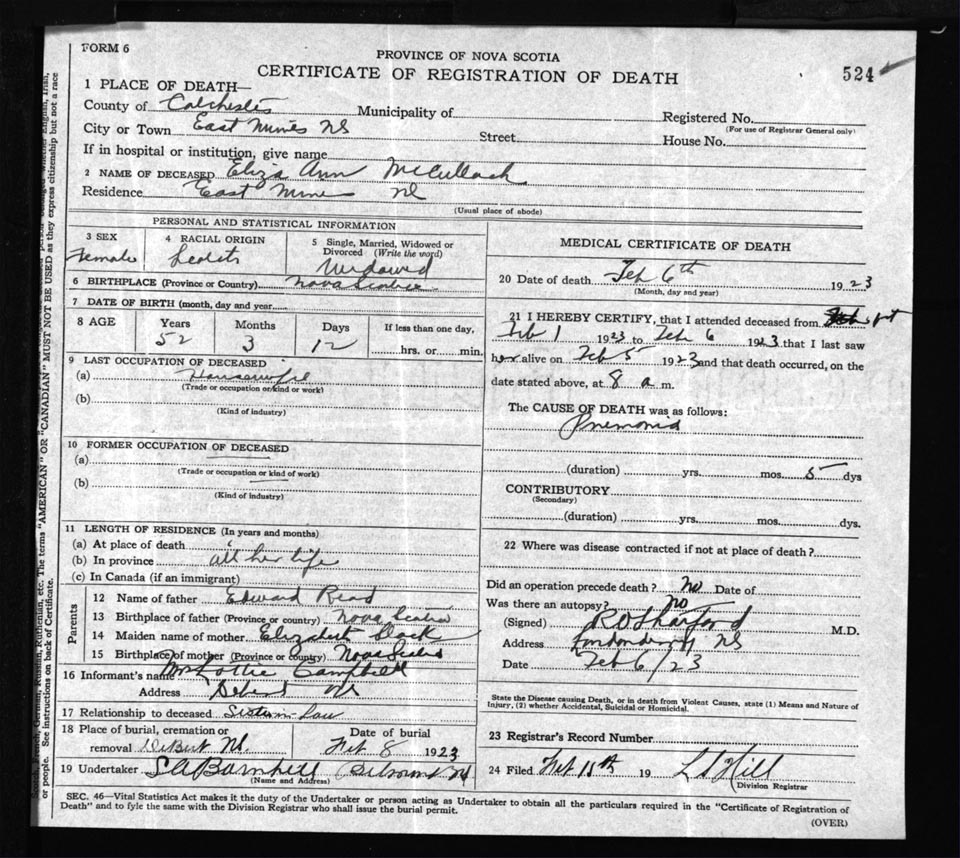 FORM 6
PROVINCE OF NOVA SCOTIA
CERTIFICATE OF REGISTRATION OF DEATH
524
1 PLACE OF DEATH—
County of Colchester Municipality of Registered No.
(For use of Registrar General only)
City or Town East Mines NS Street House No.
If in hospital or institution, give name
2 NAME OF DECEASED Eliza Ann McCulloch
Residence East Mines NS
(Usual place of abode)
PERSONAL AND STATISTICAL INFORMATION
3 SEX 4 RACIAL ORIGIN 5 Single, Married, Widowed or
Divorced (Write the word)
Female Scotch Widowed
6 BIRTHPLACE (Province or Country) Nova Scotia
7 DATE OF BIRTH (month, day and year)
8 AGE Years Months Days If less than one day,
52 3 12 hrs. or min.
9 LAST OCCUPATION OF DECEASED
(a) Housewife
(Trade or occupation or kind of work)
(b)
(Kind of industry)
10 FORMER OCCUPATION OF DECEASED
(a)
(Trade or occupation or kind of work)
(b)
(Kind of industry)
11 LENGTH OF RESIDENCE (In years and months)
(a) At place of death
(b) In province all her life
(c) In Canada (if an immigrant)
Parents
12 Name of father Edward Read
13 Birthplace of father (Province or country) Nova Scotia
14 Maiden name of mother Elizabeth Slack
15 Birthplace of mother (Province or country) Nova Scotia
16 Informant's name Mrs Lottie Campbell
Address Debert NS
17 Relationship to deceased Sister in Law
18 Place of burial, cremation or Date of burial
removal Debert NS. Feb 8 1923
19 Undertaker Barnhill NS
(Name and Address)
MEDICAL CERTIFICATE OF DEATH
20 Date of death Feb 6th 1923
(Month, day and year)
21 I HEREBY CERTIFY, that I attended deceased from
Feb 1 1923 to Feb 6 1923 that I last saw
her alive on Feb 5 1923 and that death occurred, on the
date stated above, at 8 a m.
The CAUSE OF DEATH was as follows:
Pnemonia
(duration) yrs. mos. 5 dys
CONTRIBUTORY
(Secondary)
(duration) yrs. mos. dys.
22 Where was disease contracted if not at place of death?
Did an operation precede death? no Date of
Was there an autopsy? no
(Signed) M.D.
Address Londonderry NS
Date Feb 6/23
State the Disease causing Death, or in death from Violent Causes, state (1) Means and Nature of
Injury, (2) whether Accidental, Suicidal or Homicidal.
23 Registrar's Record Number
24 Filed Feb 19 Hill
Division Registrar
SEC. 46—Vital Statistics Act makes it the duty of the Undertaker or person acting as Undertaker to obtain all the particulars required in the "Certificate of Registration of
Death" and to fyle the same with the Division Registrar who shall issue the burial permit.
(OVER)
French, German, Russian, Ruthenian, etc. The terms "AMERICAN" OR "CANADIAN" MUST NOT BE USED as they express citizenship but not a race
or people. See instructions on back of Certificate.